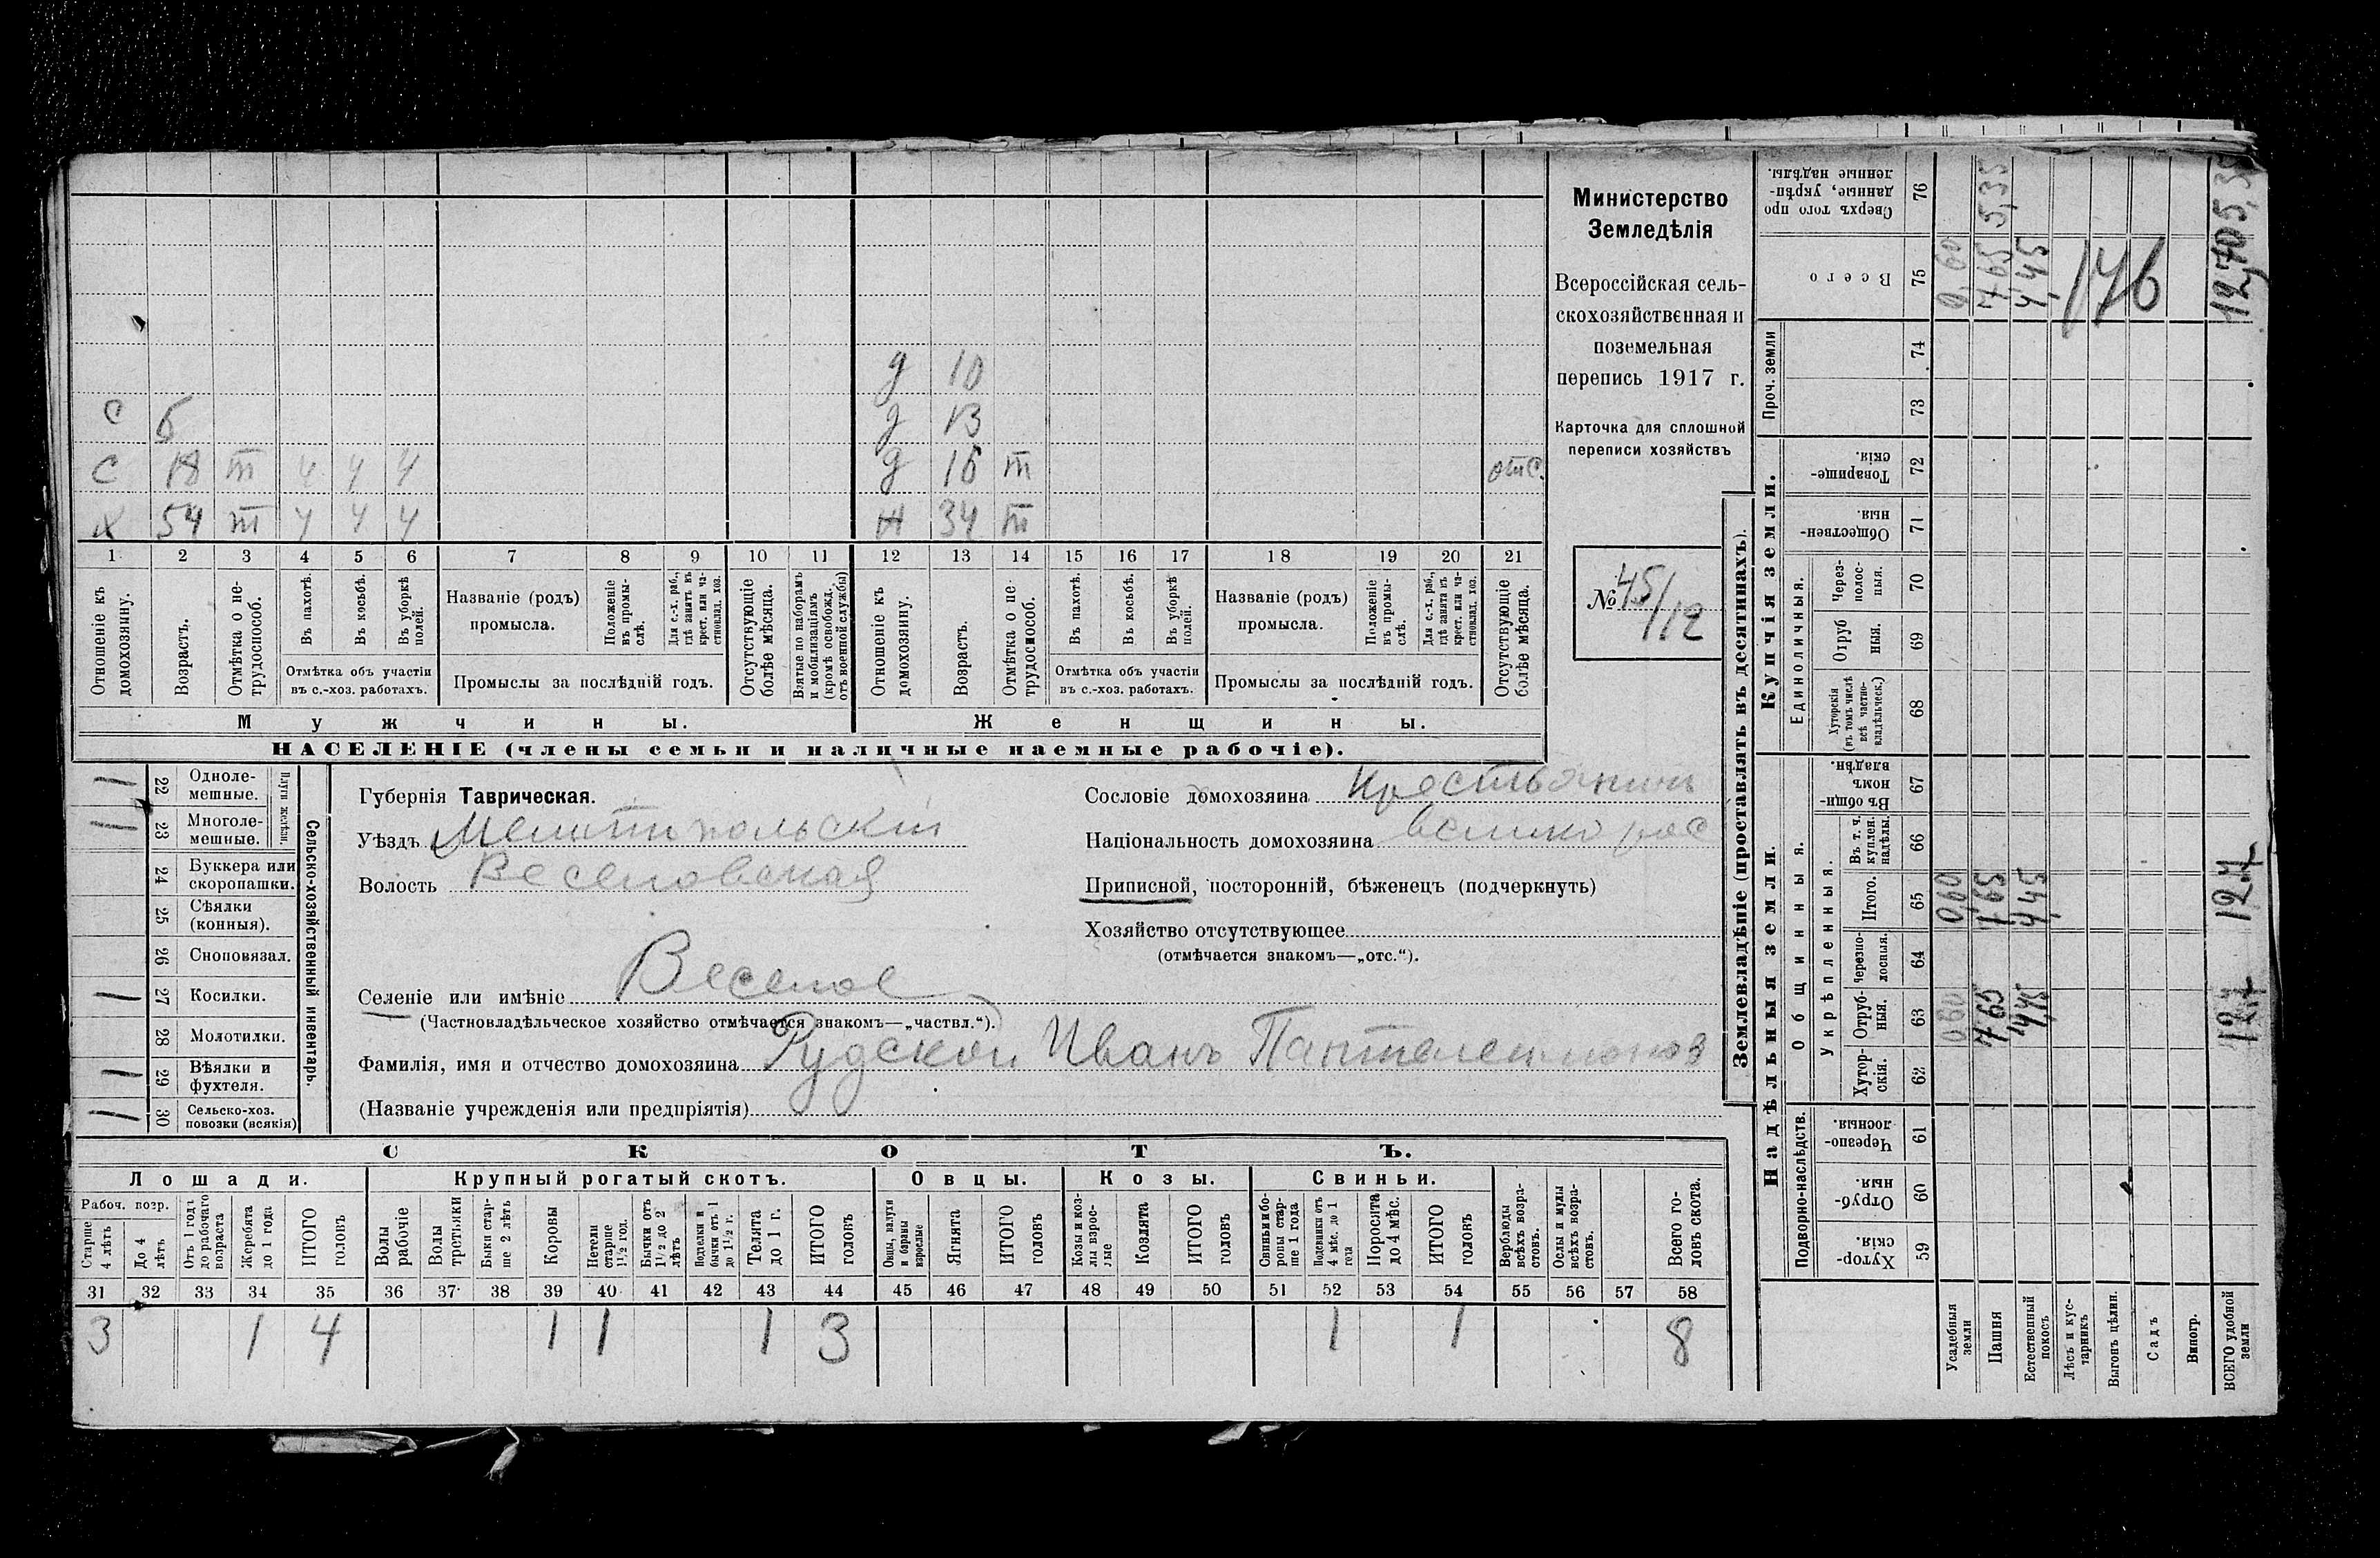 д 10
С 5 д 13
С 18 т ч ч ч д 16 т отс.
Х 54 т ч ч ч Ж 34 т
1 2 3 4 5 6 7 8 9 10 11 12 13 14 15 16 17 18 19 20 21
Отношеніе къ домохозяину.
Возрастъ.
Отмѣтка о нетрудоспособ.
Въ пахотѣ.
Въ косьбѣ.
Въ уборкѣ полей.
Отмѣтка объ участіи въ с.-хоз. работахъ.
Названіе (родъ) промысла.
Положеніе въ промыслѣ.
Для с.-х. раб., гдѣ занятъ въ крест. или частновлад. хоз.
Промыслы за послѣдній годъ.
Отсутствующіе болѣе мѣсяца.
Взятые по наборамъ и мобилизаціямъ (кромѣ освобожд. отъ военной службы)
Отношеніе къ домохозяину.
Возрастъ.
Отмѣтка о нетрудоспособ.
Въ пахотѣ.
Въ косьбѣ.
Въ уборкѣ полей.
Отмѣтка объ участіи въ с.-хоз. работахъ.
Названіе (родъ) промысла.
Положеніе въ промыслѣ.
Для с.-х. раб., гдѣ занята въ крест. или частновлад. хоз.
Промыслы за послѣдній годъ.
Отсутствующіе болѣе мѣсяца.
Мужчины. Женщины.
НАСЕЛЕНІЕ (члены семьи и наличные наемные рабочіе).
Министерство
Земледѣлія
Всероссійская сель-
скохозяйственная и
поземельная
перепись 1917 г.
Карточка для сплошной
переписи хозяйствъ
№ 45/12
1 22 Однолемешные.
1 23 Многолемешные.
Плуги желѣзн.
24 Буккера или скоропашки.
25 Сѣялки (конныя).
26 Сноповязал.
1 27 Косилки.
28 Молотилки.
1 29 Вѣялки и фухтеля.
1 30 Сельско-хоз. повозки (всякія)
Сельско-хозяйственный инвентарь.
Губернія Таврическая.
Уѣздъ Мелитопольскій
Волость Веселовская
Сословіе домохозяина Крестьянинъ
Національность домохозяина великорос
Приписной, посторонній, бѣженецъ (подчеркнуть)
Хозяйство отсутствующее
(отмѣчается знакомъ—„отс.“).
Селеніе или имѣніе Веселое
(Частновладѣльческое хозяйство отмѣчается знакомъ—„частвл.“).
Фамилія, имя и отчество домохозяина Рудской Иванъ Пантелеимонов
(Названіе учрежденія или предпріятія)
СКОТЪ.
Лошади. Крупный рогатый скотъ. Овцы. Козы. Свиньи.
Рабоч. возр.
Старше 4 лѣтъ
До 4 лѣтъ
Отъ 1 годъ до рабочаго возраста
Жеребята до 1 года
ИТОГО головъ
Волы рабочіе
Волы третьяки
Быки старше 2 лѣтъ
Коровы
Нетели старше 1 1/2 год.
Бычки отъ 1 1/2 до 2 лѣтъ
Подтелки и бычки отъ 1 до 1 1/2 г.
Телята до 1 г.
ИТОГО головъ
Овцы, валухи и бараны взрослые
Ягнята
ИТОГО головъ
Козы и козлы взрослые
Козлята
ИТОГО головъ
Свиньи и боровы старше 1 года
Подсвинки отъ 4 мѣс. до 1 года
Поросята до 4 мѣс.
ИТОГО головъ
Верблюды всѣхъ возрастовъ.
Ослы и мулы всѣхъ возрастовъ.
Всего головъ скота.
31 32 33 34 35 36 37 38 39 40 41 42 43 44 45 46 47 48 49 50 51 52 53 54 55 56 57 58
3 1 4 1 1 1 3 1 1 8
Землевладѣніе (проставлять въ десятинахъ).
Надѣльныя земли. Купчія земли. Проч. земли
Подворно-наслѣдств. Общинныя. Единоличныя.
Укрѣпленныя.
Хуторскія. 59
Отрубныя. 60
Черезполосныя. 61
Хуторскія. 62
Отрубныя. 63
Черезполосныя. 64
Итого. 65
Въ т. ч. куплен. надѣлы. 66
Въ общинномъ владѣн. 67
Хуторскія (въ томъ числѣ всѣ частновладѣльческ.) 68
Отрубныя. 69
Черезполосныя. 70
Общественныя. 71
Товарищескія. 72
73
74
Всего 75
Сверхъ того проданные, укрѣпленные надѣлы. 76
Усадебныя земли 0,60 0,60 0,60
Пашня 7,65 7,65 7,65 5,35
Естественный покосъ 4,45 4,45 4,45
Лѣсъ и кустарникъ
Выгонъ цѣлин.
Садъ
Виногр.
ВСЕГО удобной земли 12,7 12,7 12,70 5,35
146